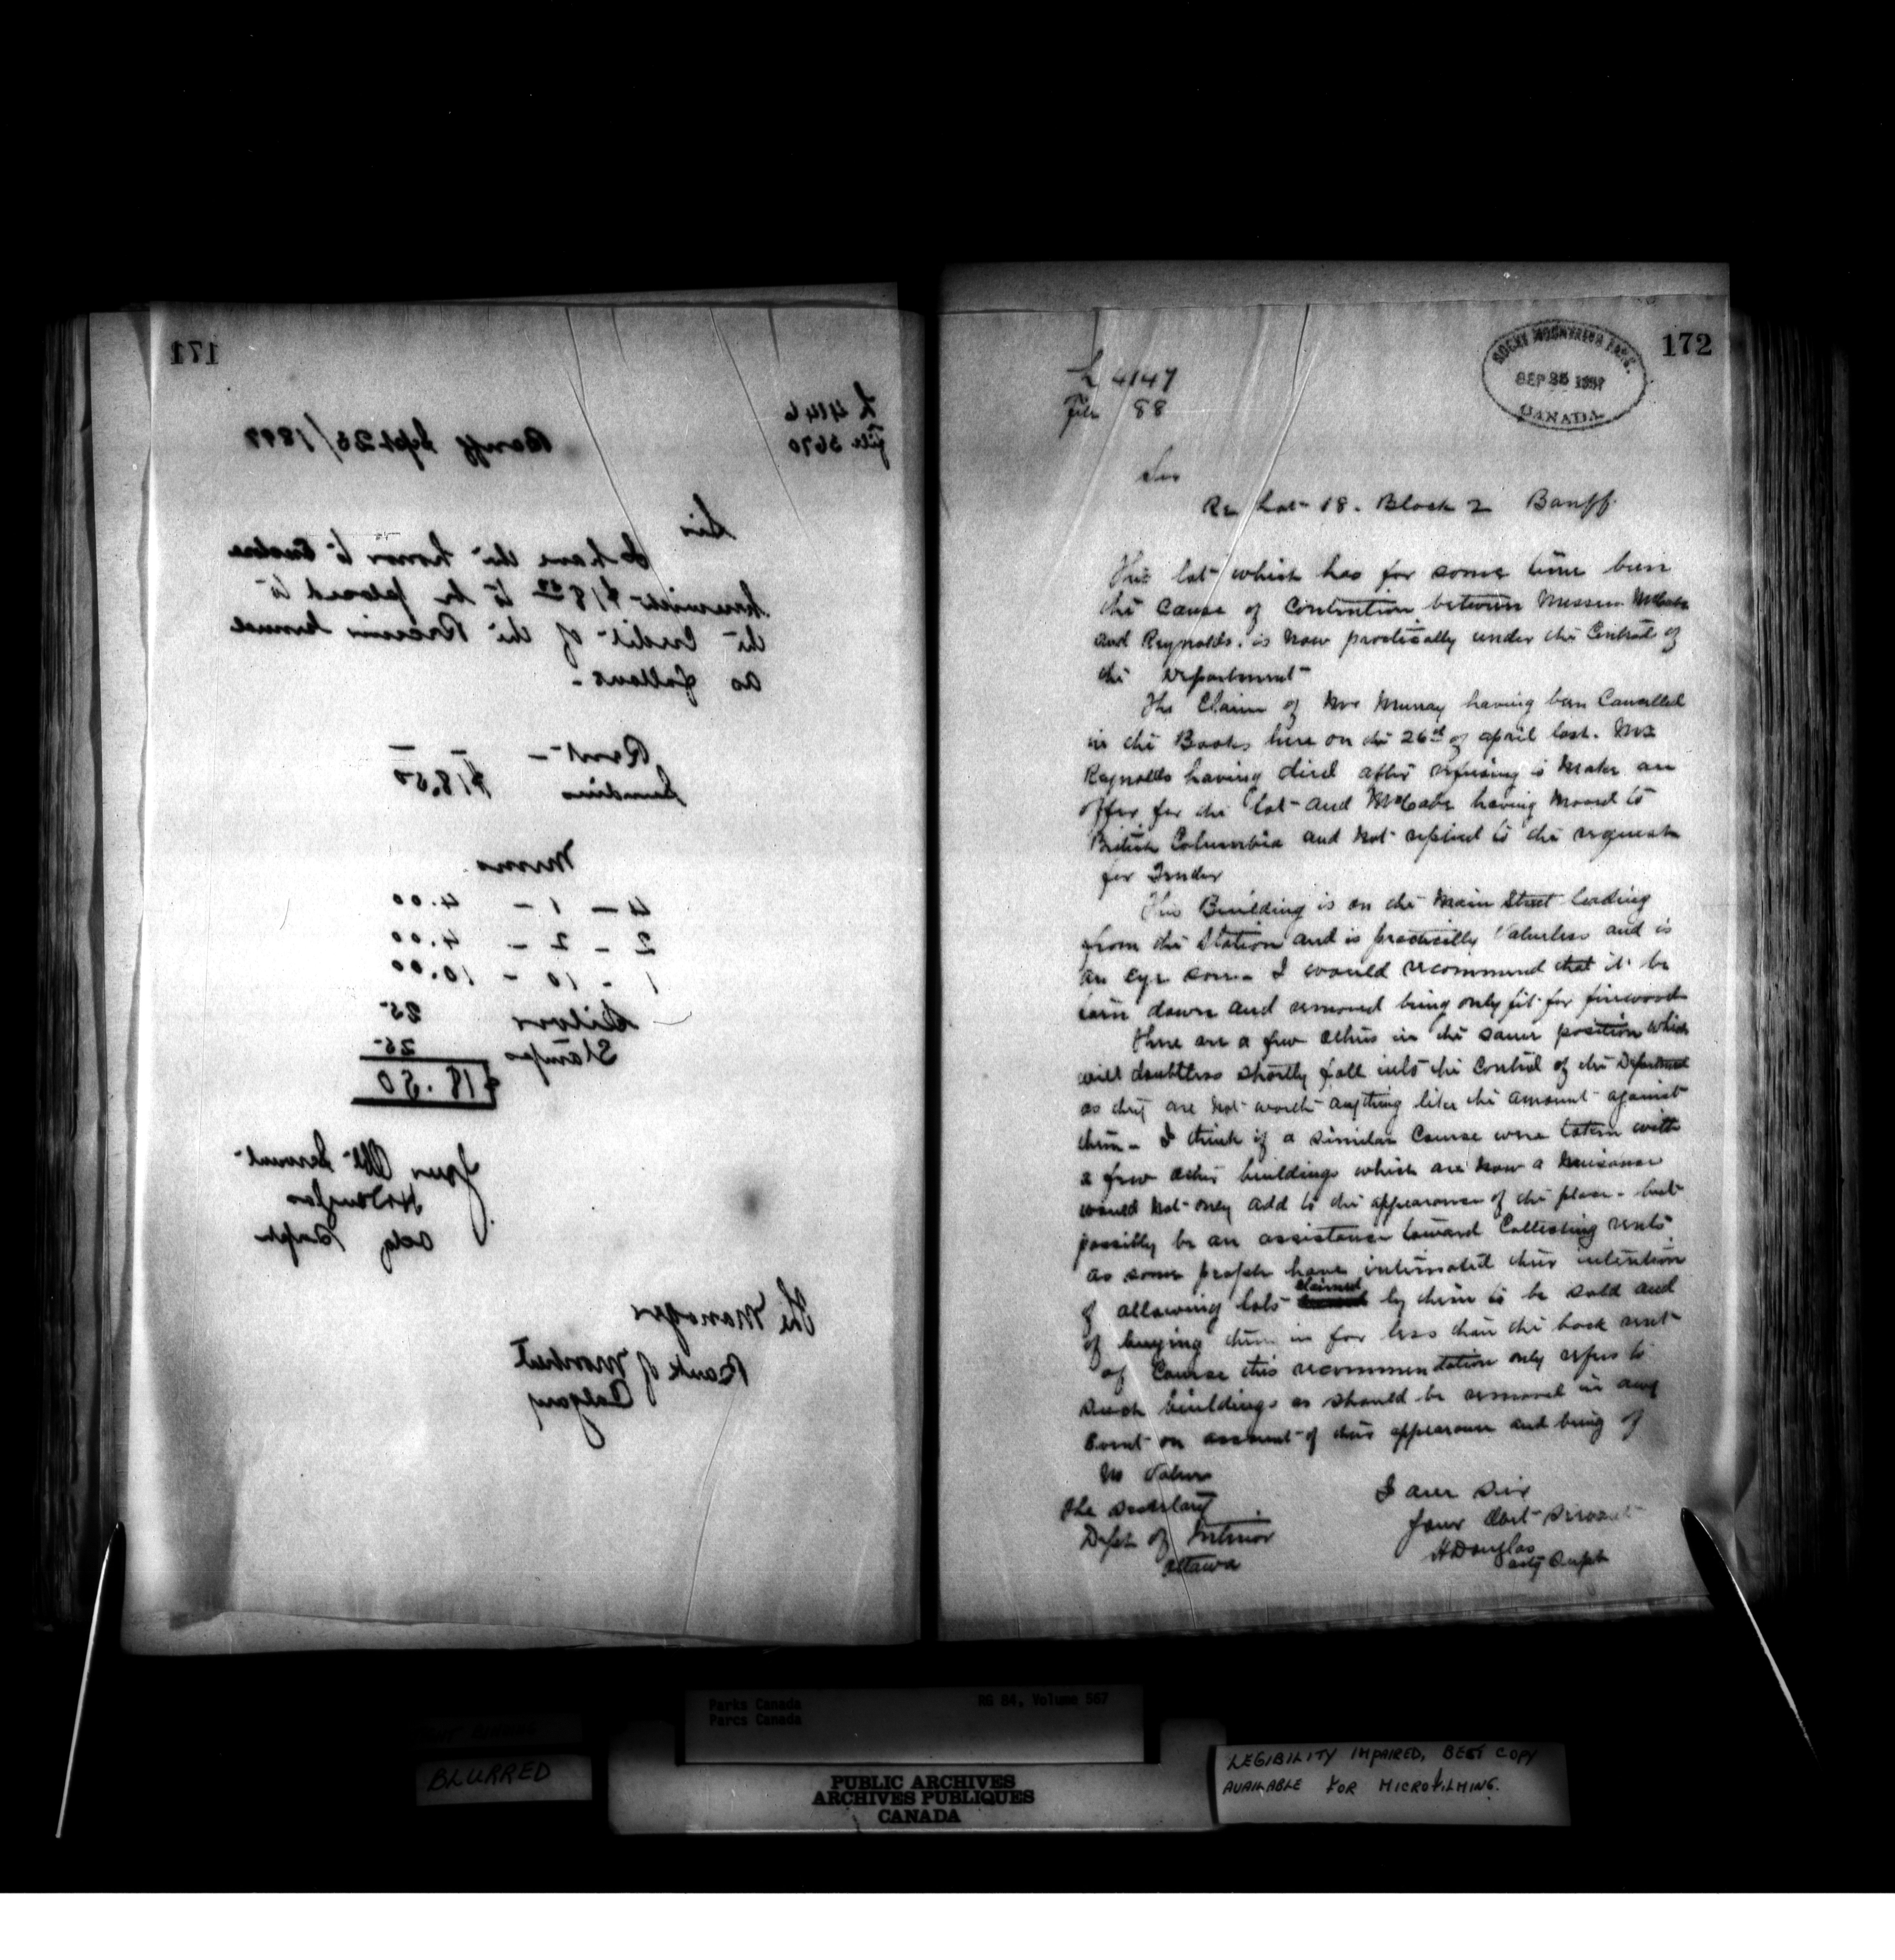 171
L 4146
File 5670
Banff Sept 25/1897
Sir
I have the honor to enclose
herewith $18.50 to be placed to
the credit of the Receiver General
as follows -
Rent -
Sundries $18.50
Memo
4 - 1 - 4.00
2 - 2 - 4.00
1 - 10 - 10.00
Silver 25
Stamps 25
$18.50
Your Obt Servant
HDouglas
Actg Supt
The Manager
Bank of Montreal
Calgary
172
ROCKY MOUNTAINS PARK.
SEP 25 1897
CANADA
L 4147
File 88
Sir
Re Lot 18. Block 2 Banff.
This lot which has for some time been
the cause of Contention between Messrs McCabe
and Reynolds. is now practically under the Control of
the Department
The Claim of Mrs Murray having been Cancelled
in the Books here on the 26th of april last. Mr
Reynolds having died after refusing to make an
offer for the lot and McCabe having moved to
British Columbia and not replied to the request
for Tender
This Building is on the Main Street leading
from the Station and is practically Valueless and is
an eye sore - I would recommend that it be
torn down and removed being only fit for firewood
There are a few others in the same position which
will doubtless shortly fall into the Control of the Department
as they are not worth anything like the amount against
them - I think if a similar Course were taken with
a few other buildings which are now a nuisance
would not only add to the appearance of the place - but
possibly be an assistance toward Collecting rents
as some people have intimated their intention
of allowing lots claimed by them to be sold and
of buying them in for less than the back rent
of Course this recommendation only refers to
such buildings as should be removed in any
Event on account of their appearance and being of
no Value
I am Sir
Your Obt Servant
HDouglas
actg Supt
The Secretary
Dept of Interior
Ottawa
Parks Canada
Parcs Canada
RG 84, Volume 567
BLURRED
PUBLIC ARCHIVES
ARCHIVES PUBLIQUES
CANADA
LEGIBILITY IMPAIRED, BEST COPY
AVAILABLE FOR MICROFILMING.